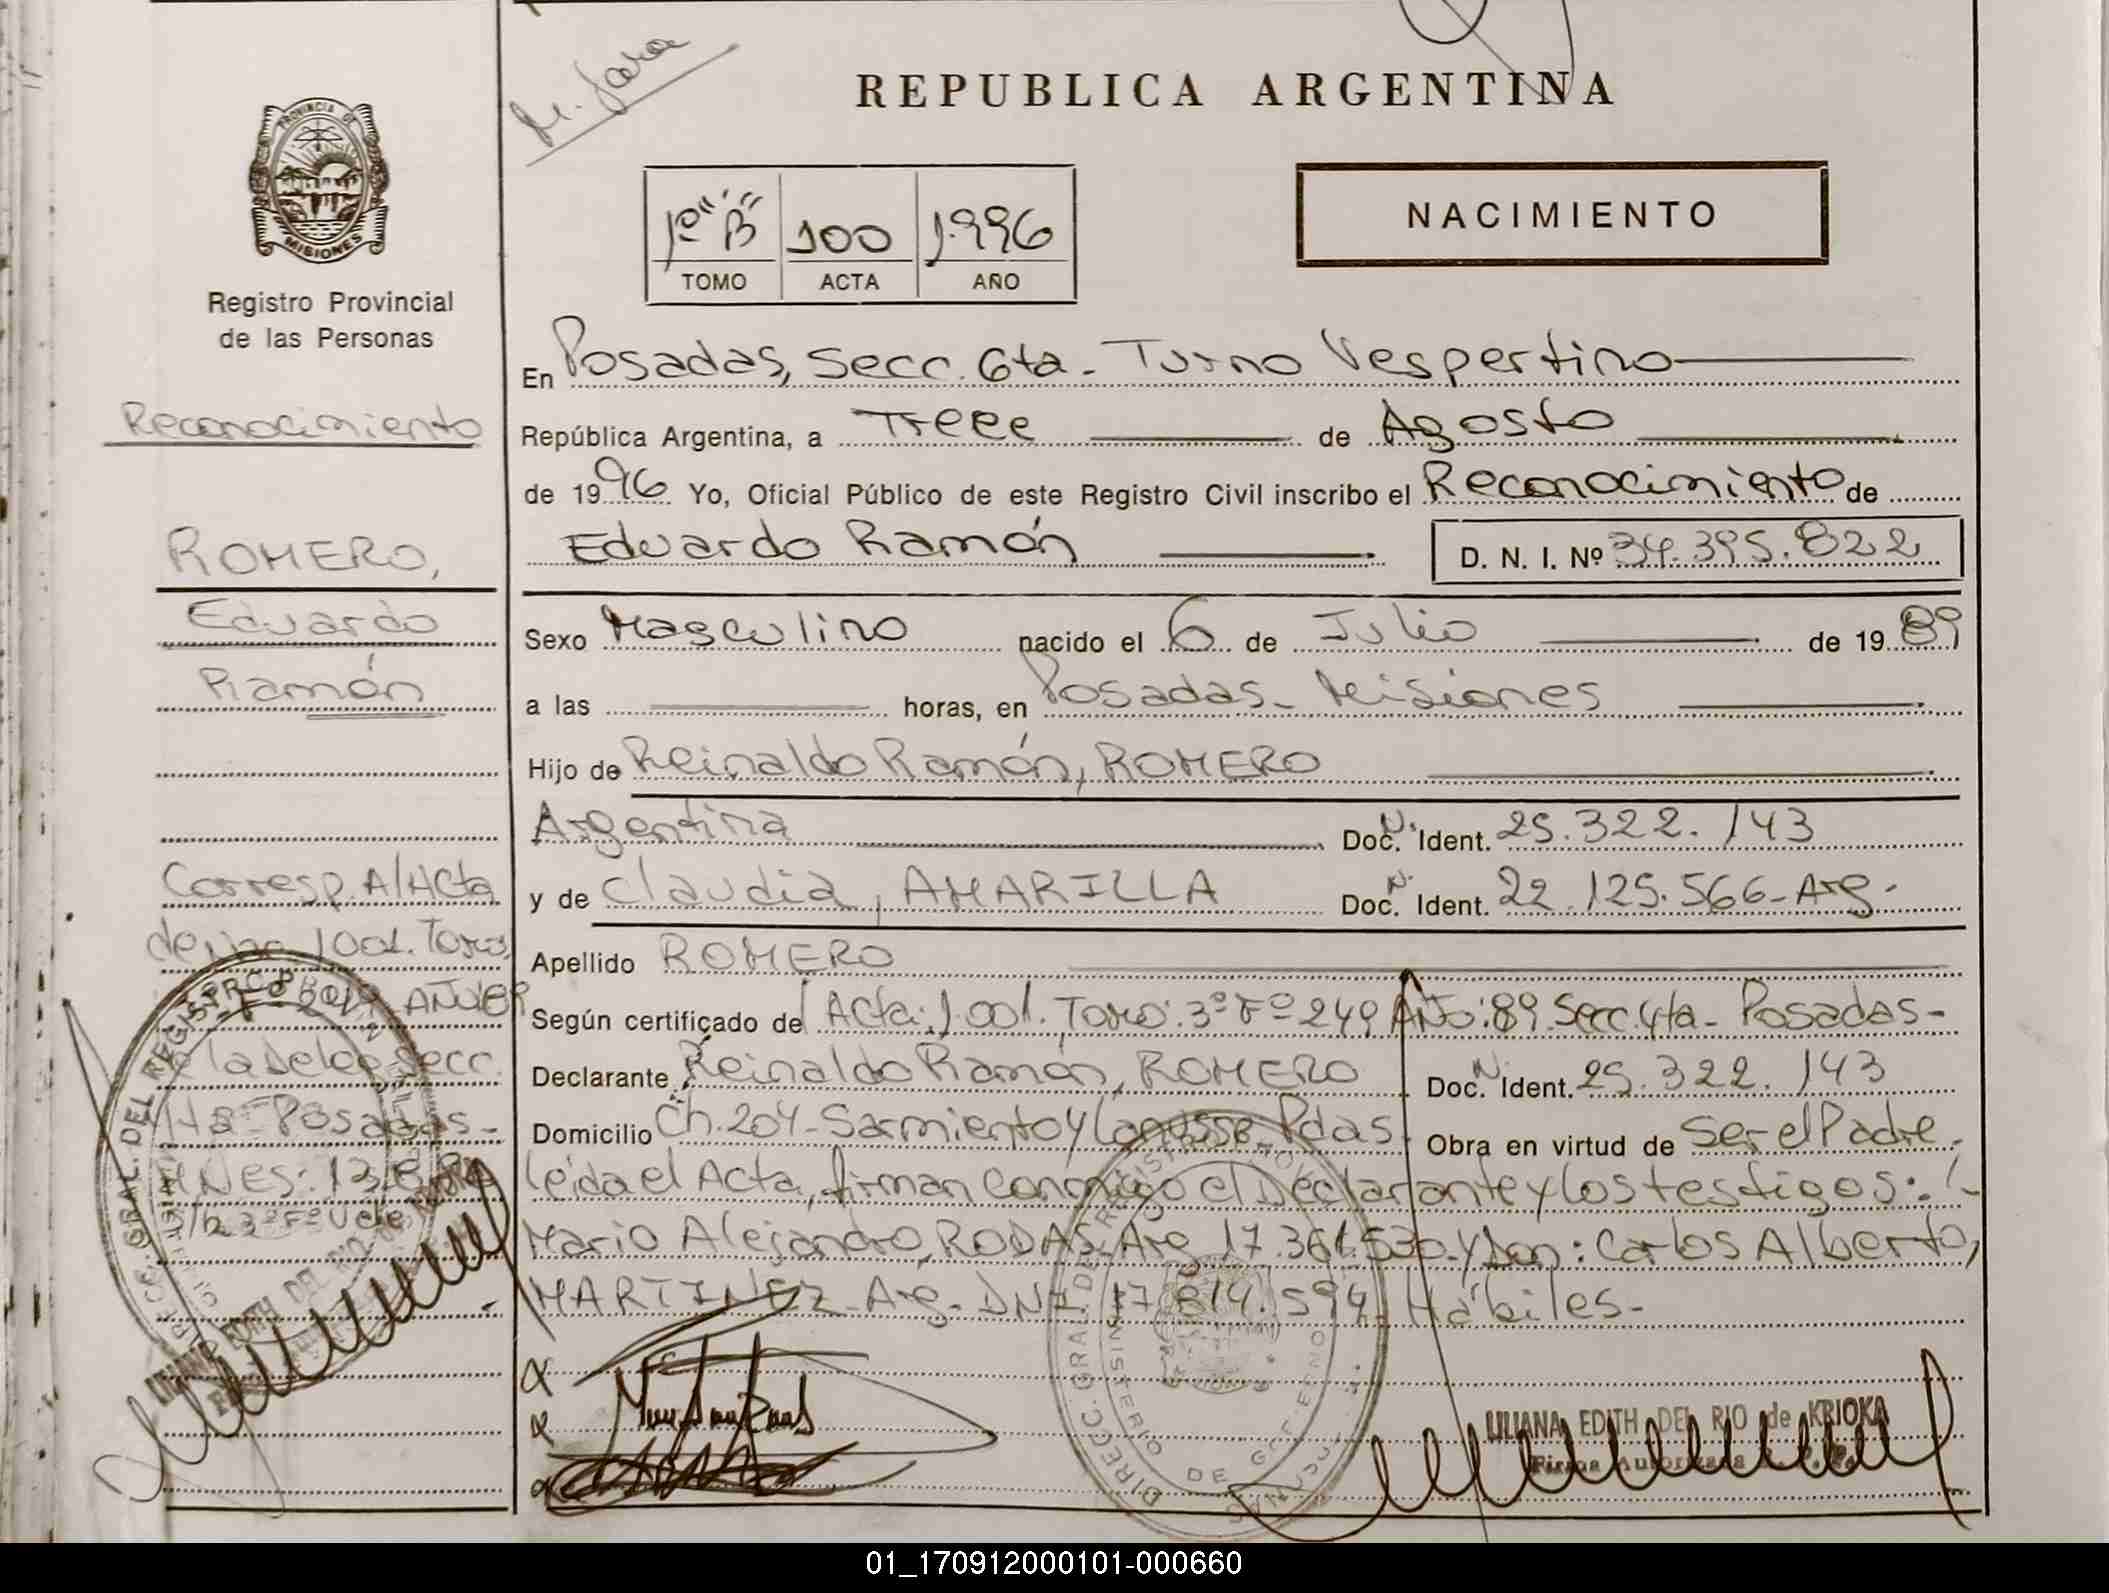 M. Jara
REPUBLICA ARGENTINA
PROVINCIA DE
MISIONES
Registro Provincial
de las Personas
1º "B" 100 1.996
TOMO ACTA AÑO
NACIMIENTO
En Posadas, Secc. 6ta - Turno Vespertino
República Argentina, a Trece de Agosto
de 1996 Yo, Oficial Público de este Registro Civil inscribo el Reconocimiento de
Eduardo Ramón D. N. I. Nº 34.395.822
Sexo Masculino nacido el 6 de Julio de 1989
a las horas, en Posadas - Misiones
Hijo de Reinaldo Ramón, ROMERO
Argentina Doc. N. Ident. 25.322.143
y de Claudia, AMARILLA Doc. N. Ident. 22.125.566 - Arg.
Apellido ROMERO
Según certificado del Acta: 1.001. Tomo: 3º Fº 249 Año: 89. Secc. 4ta - Posadas -
Declarante: Reinaldo Ramón, ROMERO Doc. N. Ident. 25.322.143
Domicilio Ch. 204 - Sarmiento y Lanusse. Pdas. Obra en virtud de Ser el Padre.
leída el Acta, firman conmigo el Declarante y los testigos:
Mario Alejandro, RODAS. Arg. 17.361.530 y Don: Carlos Alberto,
MARTINEZ - Arg. DNI. 17.814.594. Hábiles.-
Reconocimiento
ROMERO,
Eduardo
Ramón
Corresp. Al Acta
de Nac. 1001. Tomo
de la Deleg. Secc.
4ta - Posadas -
MNES: 13.8.
LILIANA EDITH DEL RIO de KRIOKA
Firma Autorizada
LILIANA EDITH DEL RIO de KRIOKA
DIRECC. GRAL. DEL REGISTRO
DIRECC. GRAL. DEL REGISTRO
MINISTERIO DE GOBIERNO
01_170912000101-000660